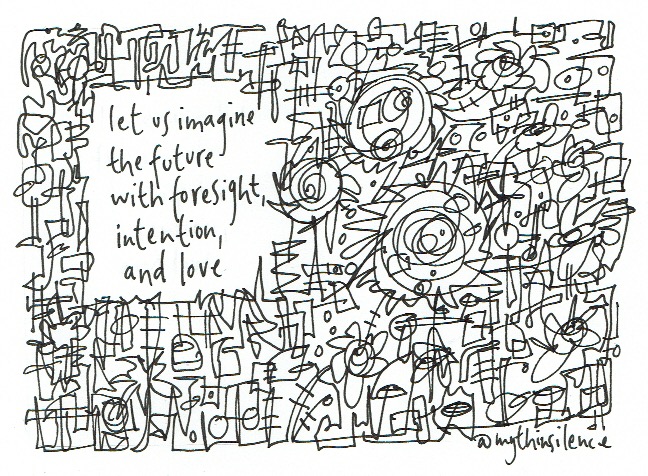 let us imagine
the future
with foresight,
intention,
and love
@mythinsilence